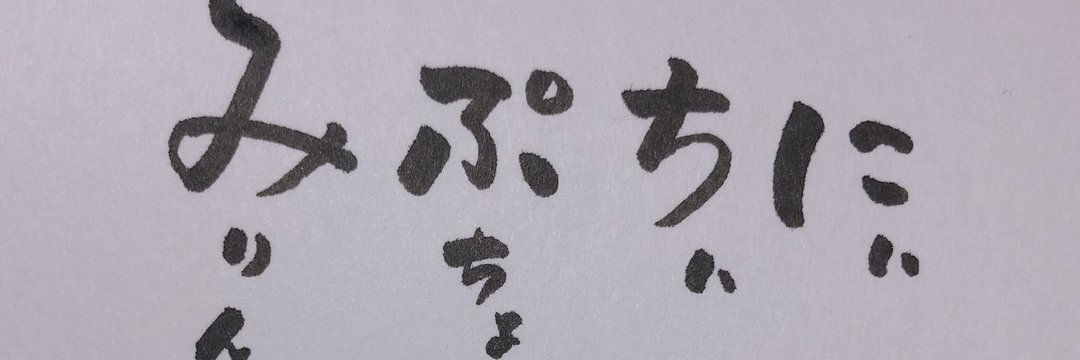 にい
ちい
ぷちょ
みりん